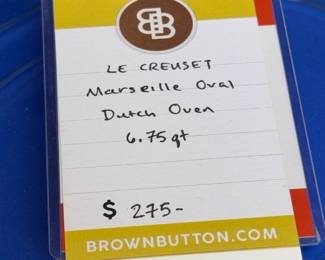 BB
LE CREUSET
Marseille Oval
Dutch Oven
6.75qt
$ 275-
BROWNBUTTON.COM